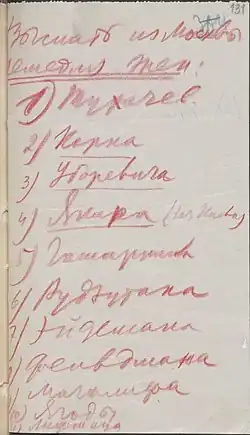 181
Выслать из Москвы
немедля жен:
1) Тухачев.
2) Корка
3) Уборевича
4) Якира (из Киева)
5) Гамарника
6) Рудзутака
7) Эйдемана
8) Фельдмана
9) Магалифа
10) Ягоды